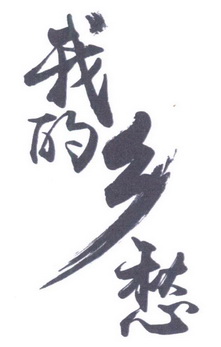 我的乡愁